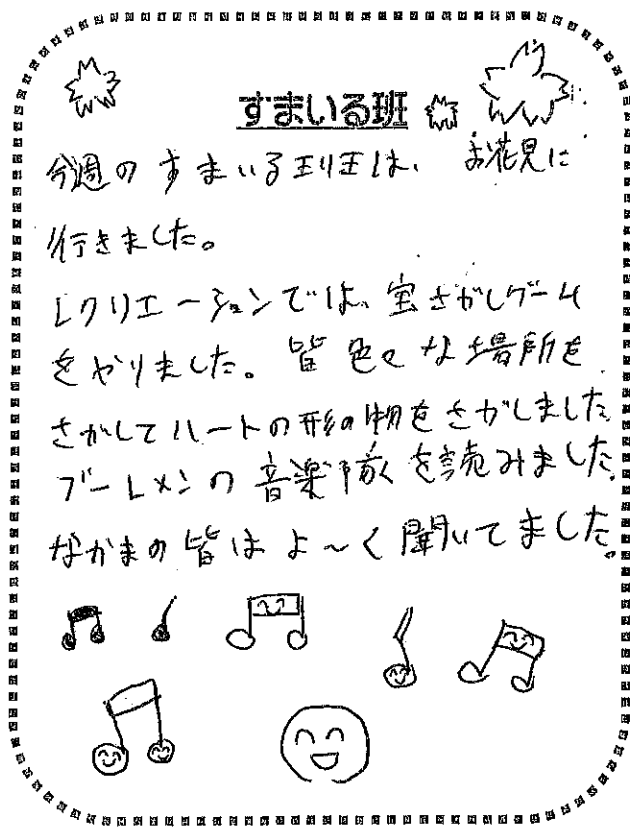 すまいる班
今週のすまいる班は、お花見に
行きました。
レクリエーションでは、宝さがしゲーム
をやりました。皆色々な場所を
さがしてハートの形の物をさがしました。
ブーレメンの音楽隊を読みました。
なかまの皆はよ～く聞いてました。